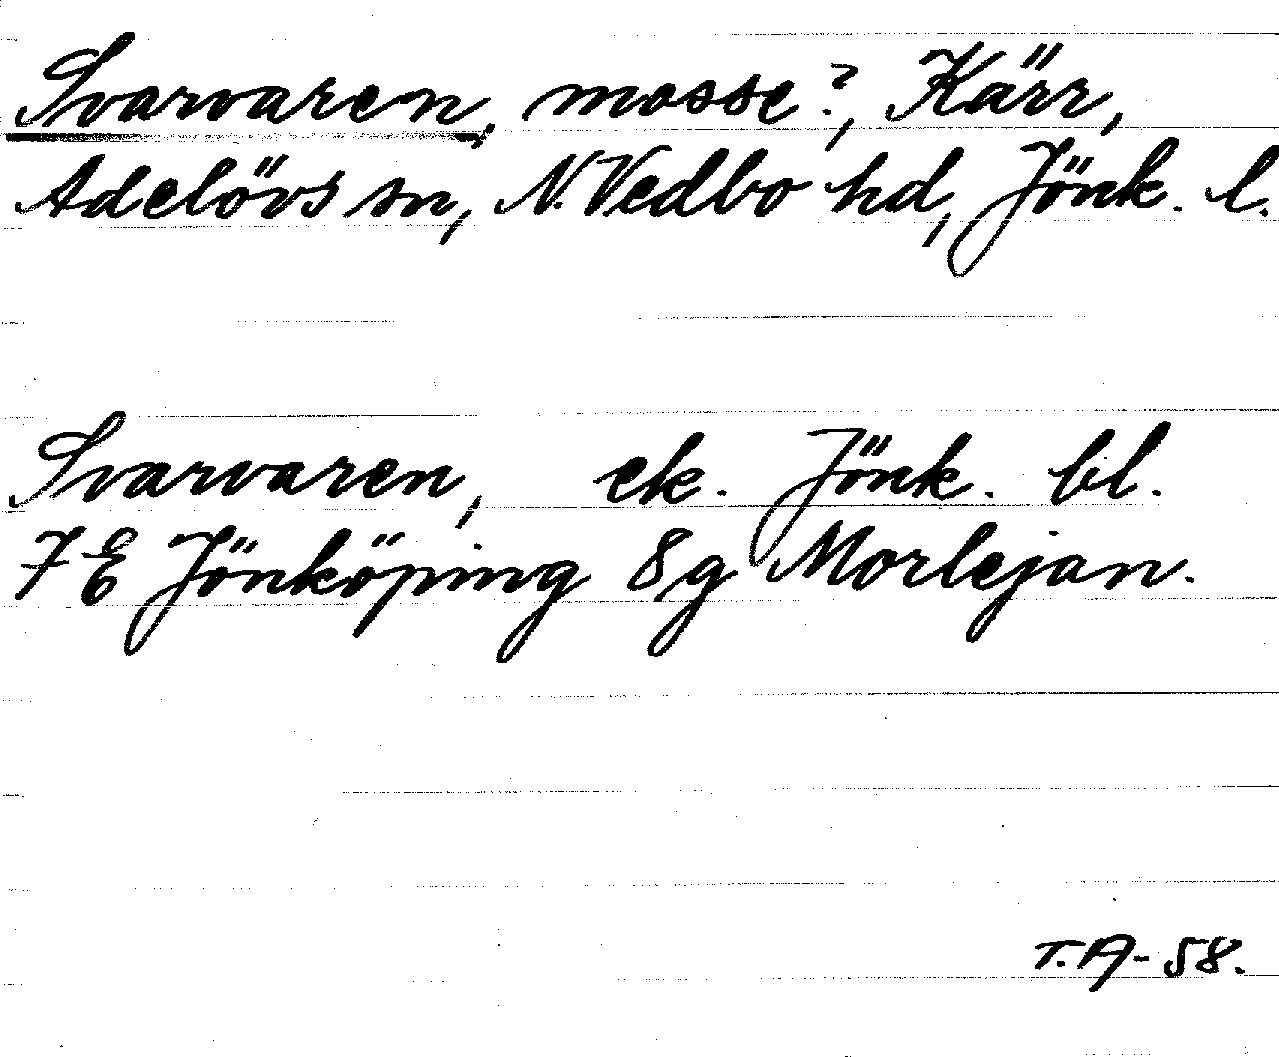 Svarvaren, mosse?, Kärr,
Adelövs sn, N. Vedbo hd, Jönk. l.
Svarvaren, ek. Jönk. bl.
7 E Jönköping 8g Morlejan.
T.A-58.